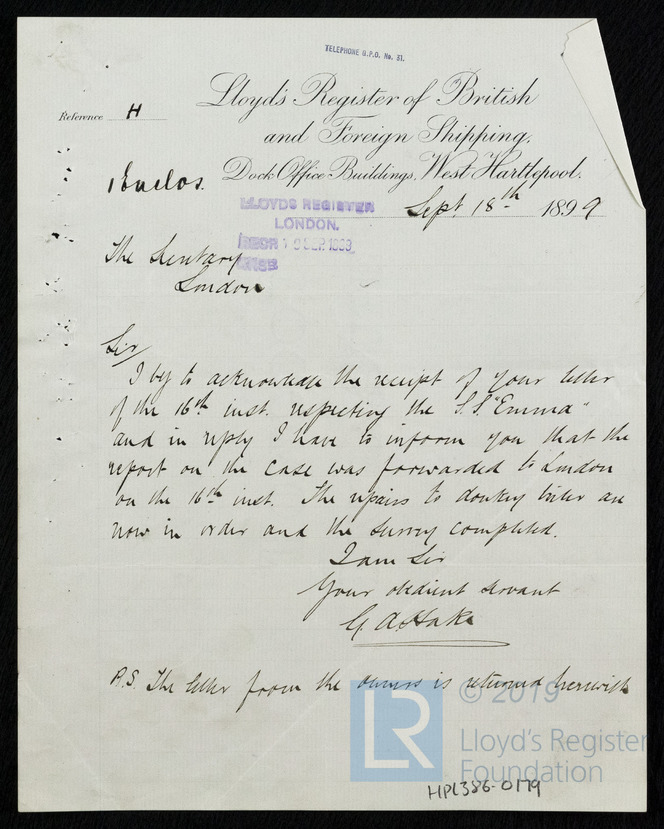 TELEPHONE G.P.O. No. 31.
Lloyd's Register of British
and Foreign Shipping.
Reference H
Dock Office Buildings, West Hartlepool.
1 Enclos.
Sept. 18th 1899
LLOYDS REGISTER
LONDON.
The Secretary
London
Sir
I beg to acknowledge the receipt of your letter
of the 16th inst. respecting the S.S. "Emma"
and in reply I have to inform you that the
report on the case was forwarded to London
on the 16th inst. The repairs to donkey boiler are
now in order and the survey completed.
I am Sir
Your obedient servant
G. A. Hake
P.S. The letter from the owners is returned herewith
© 2019
LR
Lloyd's Register
Foundation
HPL386-0179